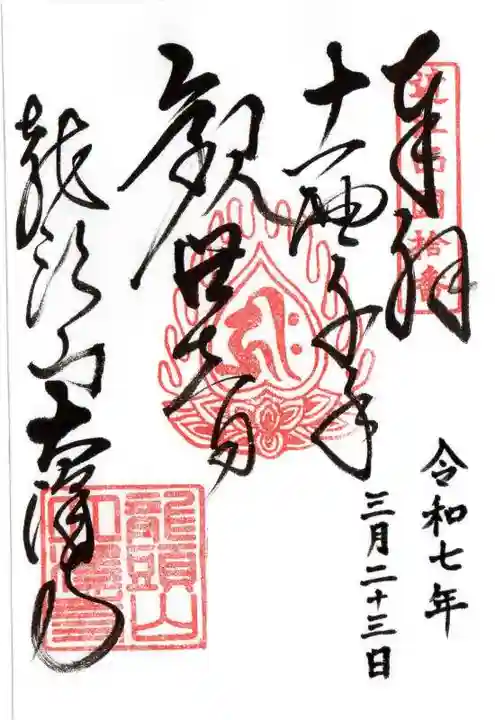 奉拝
近江西国拾番
十一面千手
観世音
龍頭山大澤寺
令和七年
三月二十三日
龍頭山